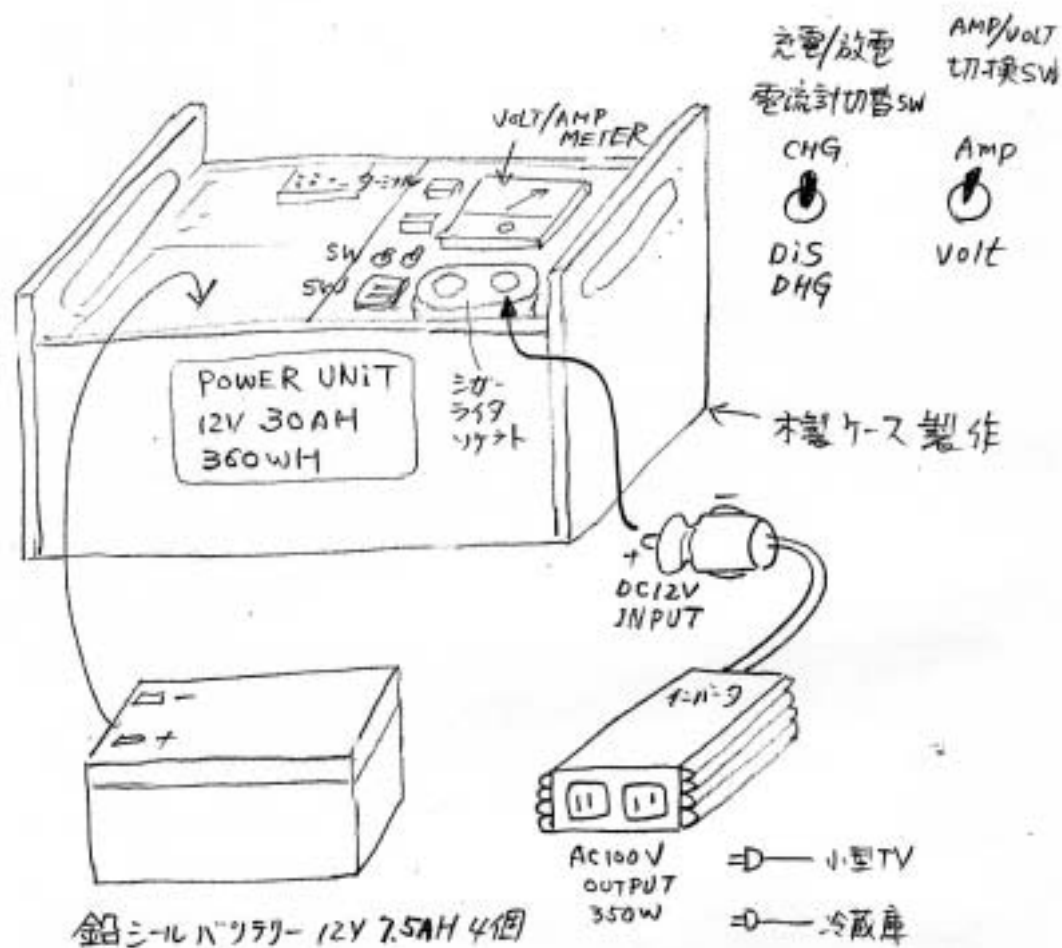 充電/放電
電流計切替SW
CHG
DiS
DHG
AMP/VOLT
切換SW
AMP
Volt
VOLT/AMP
METER
ターミナル
SW
SW
POWER UNiT
12V 30AH
360WH
シガー
ライタ
ソケット
木製ケース製作
+
−
DC12V
INPUT
−
+
インバータ
AC100V
OUTPUT
350W
小型TV
冷蔵庫
鉛シールバッテリー 12V 7.5AH 4個